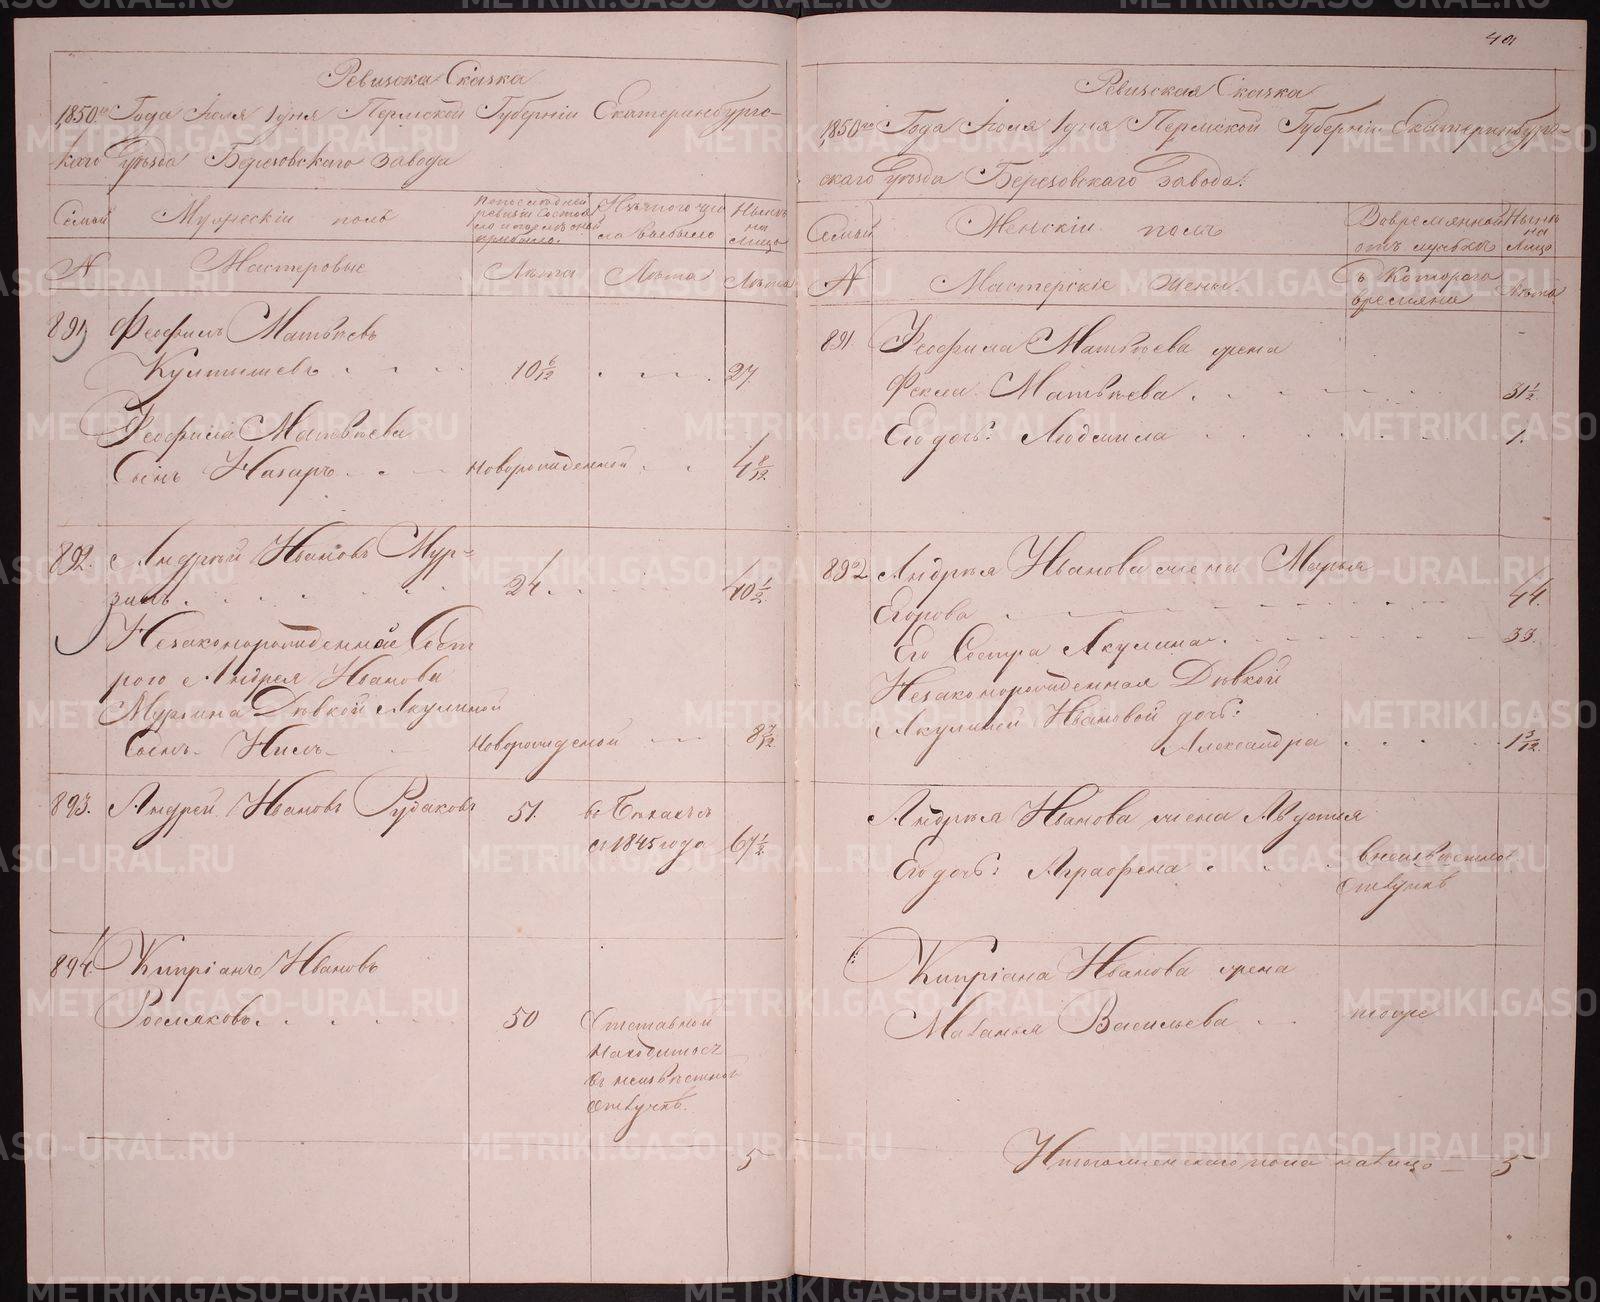 Ревизска Сказка
1850го Года Июля 1 дня Пермской Губерніи Екатеринбургс-
каго Уѣзда Березовскаго завода
Семьи
Мужескій полъ
По последней ревизіи состояло и после оной прибыло.
Изъ того числа выбыло
Нынѣ на лицо
№
Мастеровые
Лѣта
Лѣта
Лѣта
891
Феофилъ Матвѣевъ
10 6/12
27
Феофила Матвѣева
Сынъ Назаръ
Новорожденной
4 8/12
892.
Андрей Ивановъ Мур-
зинъ
24
40 1/2
Незаконорожденной Сест
рою Андрея Иванова
Мурзина Дѣвкой Акулиной
Сынъ Нилъ
Новорожденой
8 7/12
893.
Андрей Ивановъ Рудаковъ
51.
въ бѣгахъ
съ 1845 года
67 1/2
894.
Кипріанъ Ивановъ
50
Отставной
находится
въ неизвѣстной
отлучкѣ.
5
401
Ревизская Сказка
1850го Года Июля 1 дня Пермской Губерніи Екатеринбург-
скаго Уѣзда Березовскаго завода.
Семьи
Женскій полъ
Во временной отлучке
Нынѣ на Лицо
№
Мастерскіе жены
съ Котораго времяни
Лѣта
891
Феофила Матвѣева жена
Фекла Матвѣева
31 1/2
Его дочь: Людмила
1.
892
Андрея Иванова жена Марья
Егорова
44.
Его Сестра Акулина
33.
Незаконорожденная Дѣвкой
Акулиной Ивановой дочь:
Александра
1 3/12.
Андрея Иванова жена
Его дочь: Аграфена
В неизвѣстной
отлучкѣ
Кипріана Иванова жена
Маланья Васильева
тоже
Итого женскаго пола на лицо
5
METRIKI.GASO-URAL.RU